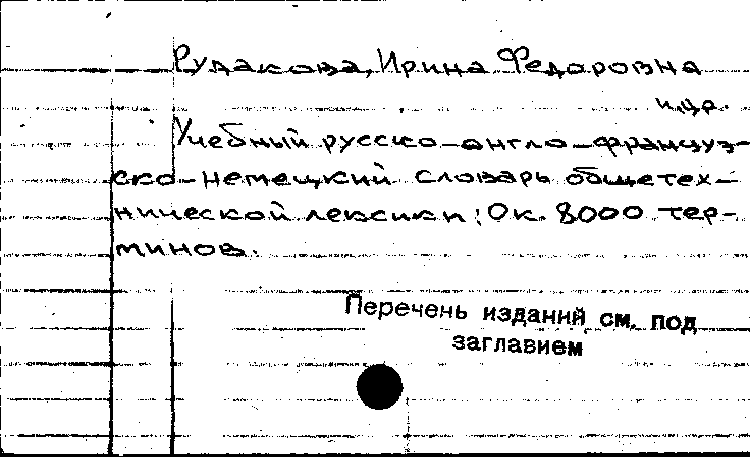 Рудакова, Ирина Федоровна
и др.
Учебный русско-англо-француз-
ско-немецкий словарь общетех-
нической лексики: Ок. 8000 тер-
минов.
Перечень изданий см. под
заглавием